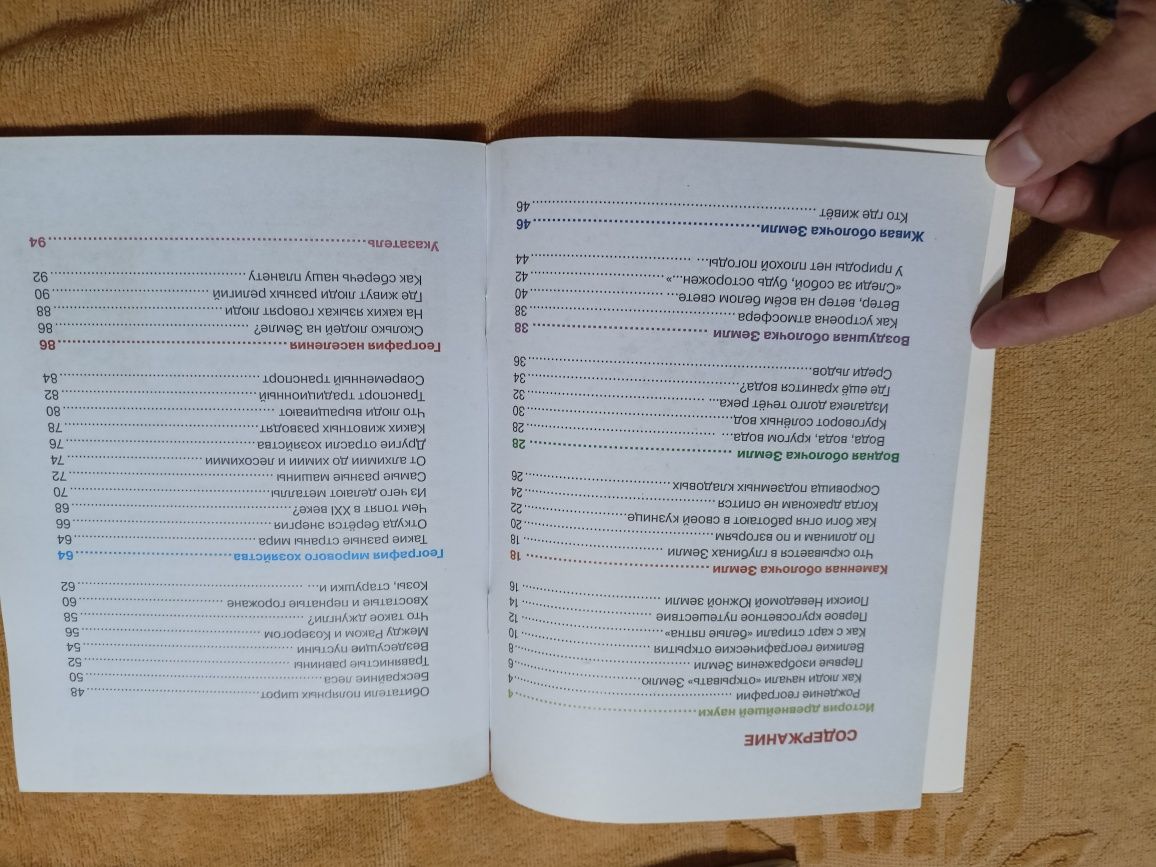 СОДЕРЖАНИЕ
История древнейшей науки 4
Рождение географии 4
Как люди начали «открывать» Землю 6
Первые изображения Земли 8
Великие географические открытия 10
Как с карт стирали «белые пятна» 12
Первое кругосветное путешествие 14
Поиски Неведомой Южной земли 16
Каменная оболочка Земли 18
Что скрывается в глубинах Земли 18
По долинам и по взгорьям 20
Как боги огня работают в своей кузнице 22
Когда драконам не спится 24
Сокровища подземных кладовых 26
Водная оболочка Земли 28
Вода, вода, кругом вода... 28
Круговорот солёных вод 30
Издалека долго течёт река... 32
Где ещё хранится вода? 34
Среди льдов 36
Воздушная оболочка Земли 38
Как устроена атмосфера 38
Ветер, ветер на всём белом свете... 40
«Следи за собой, будь осторожен...» 42
У природы нет плохой погоды... 44
Живая оболочка Земли 46
Кто где живёт 46
Обитатели полярных широт 48
Бескрайние леса 50
Травянистые равнины 52
Вездесущие пустыни 54
Между Раком и Козерогом 56
Что такое джунгли? 58
Хвостатые и пернатые горожане 60
Козы, старушки и... 62
География мирового хозяйства 64
Такие разные страны мира 64
Откуда берётся энергия 66
Чем топят в XXI веке? 68
Из чего делают металлы 70
Самые разные машины 72
От алхимии до химии и лесохимии 74
Другие отрасли хозяйства 76
Каких животных разводят 78
Что люди выращивают 80
Транспорт традиционный 82
Современный транспорт 84
География населения 86
Сколько людей на Земле? 86
На каких языках говорят люди 88
Где живут люди разных религий 90
Как сберечь нашу планету 92
Указатель 94